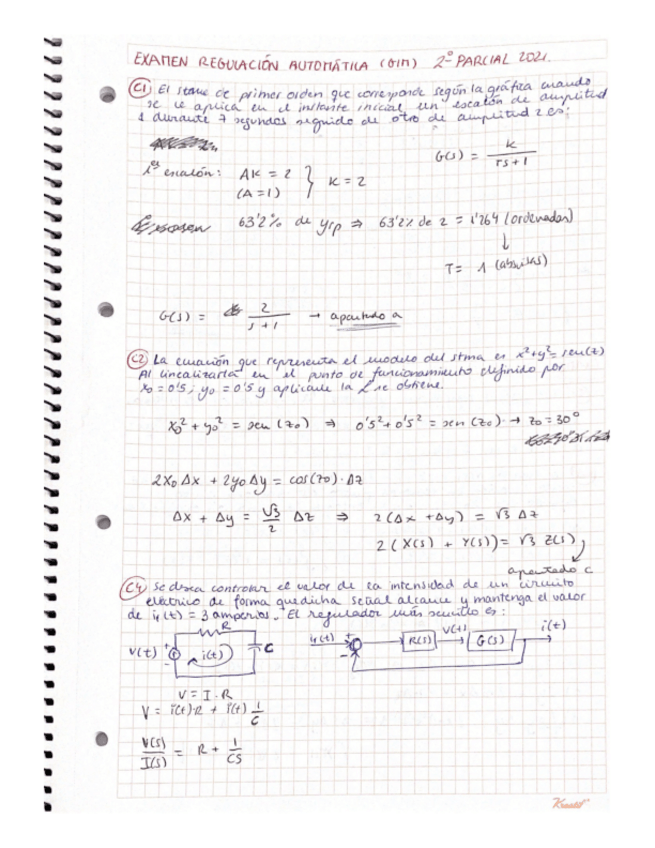 EXAMEN REGULACIÓN AUTOMÁTICA (GIM) 2º PARCIAL 2021.
C1 El stma de primer orden que corresponde según la gráfica cuando
se le aplica en el instante inicial un escalón de amplitud
1 durante 7 segundos seguido de otro de amplitud 2 es:
G(s) = K / τs + 1
1er escalón: AK = 2
(A = 1) } K = 2
63'2% de yrp ⇒ 63'2% de 2 = 1'264 (ordenadas)
↓
T = 1 (abscisas)
G(s) = 2 / s + 1 → apartado a
C2 La ecuación que representa el modelo del stma es x²+y² = sen(z)
Al linealizarla en el punto de funcionamiento definido por
x0 = 0'5; y0 = 0'5 y aplicarle la L se obtiene.
x0² + y0² = sen (z0) ⇒ 0'5² + 0'5² = sen (z0) → z0 = 30°
2x0 Δx + 2y0 Δy = cos(z0) · Δz
Δx + Δy = √3/2 Δz ⇒ 2(Δx + Δy) = √3 Δz
2(X(s) + Y(s)) = √3 Z(s)
apartado c
C4 Se desea controlar el valor de la intensidad de un circuito
eléctrico de forma que dicha señal alcance y mantenga el valor
de ir(t) = 3 amperios. El regulador más sencillo es:
R
v(t) + - i(t) C
ir(t) + - R(s) V(t) G(s) i(t)
V = I · R
V = i(t)·R + i(t) 1/C
V(s)/I(s) = R + 1/CS
Kraatil